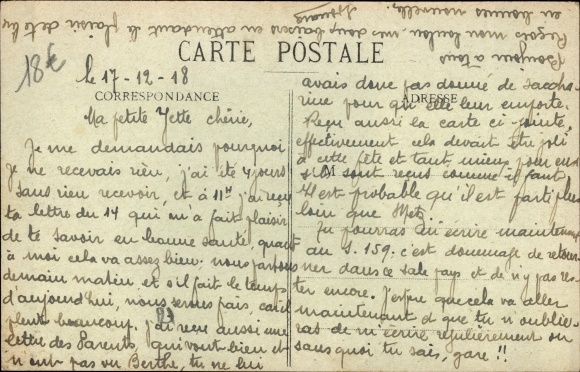 CARTE POSTALE
CORRESPONDANCE
ADRESSE
M
18€
le 17-12-18
Ma petite Yette chérie,
Je me demandais pourquoi
je ne recevais rien, j'ai été 4 jours
sans rien recevoir, et à 11H j'ai reçu
ta lettre du 14 qui m'a fait plaisir
de te savoir en bonne santé, quant
à moi cela va assez bien. nous partons
demain matin, et s'il fait le temps
d'aujourd'hui, nous serons frais, car il
pleut beaucoup. j'ai reçu aussi une
lettre des Parents, qui vont bien et
n'ont pas vu Berthe, tu ne lui
avais donc pas donné de saccha-
rine pour qu'elle leur emporte.
Reçu aussi la carte ci-jointe,
effectivement cela devait être joli
à cette fête et tant mieux pour eux
s'ils sont reçus comme il faut
Il est probable qu'il est parti plus
loin que Metz.
Tu pourras m'écrire maintenant
au S. 159. c'est dommage de retour-
ner dans ce sale pays et de n'y pas res-
ter encore. J'espère que cela va aller
maintenant et que tu n'oublie-
ras de m'écrire régulièrement ou
sans quoi tu sais, gare !!
Bonjour à tous
Reçois mon loulou, mes doux baisers en attendant le plaisir de te lire
en bonnes nouvelles.